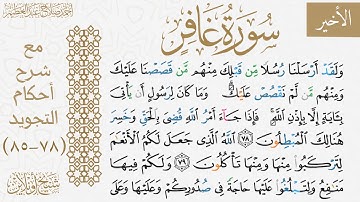 الأخير
سورة غافر
مع
شرح
أحكام
التجويد
(٧٨-٨٥)
وَلَقَدْ أَرْسَلْنَا رُسُلًا مِّن قَبْلِكَ مِنْهُم مَّن قَصَصْنَا عَلَيْكَ
وَمِنْهُم مَّن لَّمْ نَقْصُصْ عَلَيْكَ ۗ وَمَا كَانَ لِرَسُولٍ أَن يَأْتِيَ
بِـَٔايَةٍ إِلَّا بِإِذْنِ ٱللَّهِ ۚ فَإِذَا جَآءَ أَمْرُ ٱللَّهِ قُضِيَ بِٱلْحَقِّ وَخَسِرَ
هُنَالِكَ ٱلْمُبْطِلُونَ ٧٨ ٱللَّهُ ٱلَّذِي جَعَلَ لَكُمُ ٱلْأَنْعَٰمَ
لِتَرْكَبُوا۟ مِنْهَا وَمِنْهَا تَأْكُلُونَ ٧٩ وَلَكُمْ فِيهَا
مَنَٰفِعُ وَلِتَبْلُغُوا۟ عَلَيْهَا حَاجَةً فِي صُدُورِكُمْ وَعَلَيْهَا وَعَلَى